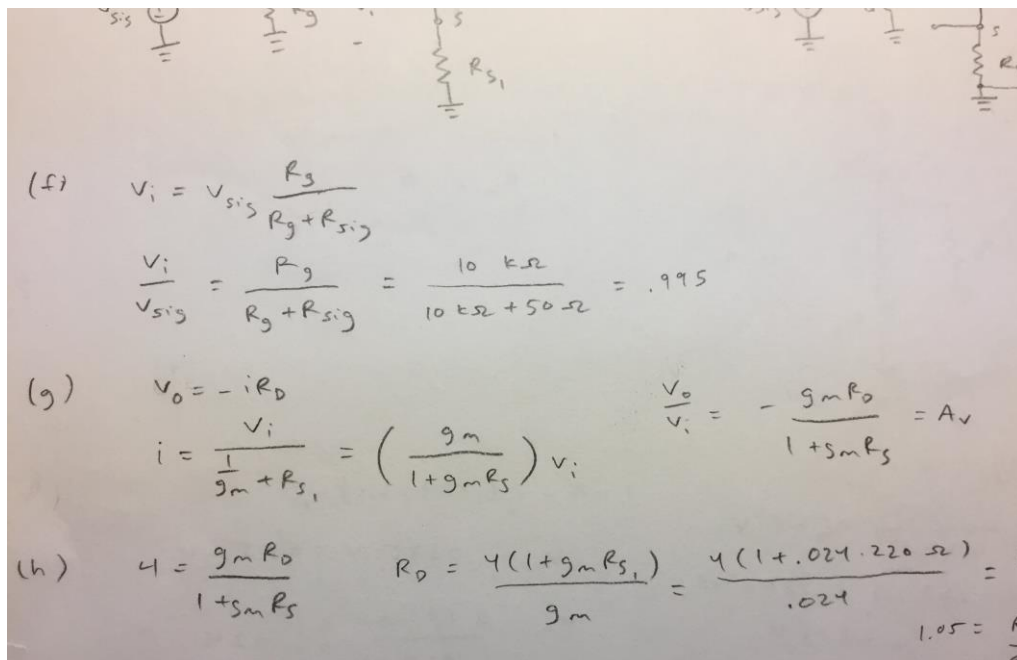 sig Rg s
R_S1
s
(f) V_i = V_sig Rg / (Rg + R_sig)
V_i / V_sig = Rg / (Rg + R_sig) = 10 kΩ / (10 kΩ + 50 Ω) = .995
(g) V_o = - i R_D
i = V_i / (1/gm + R_S1) = ( gm / (1 + gm R_S) ) V_i
V_o / V_i = - gm R_D / (1 + gm R_S) = A_v
(h) 4 = gm R_D / (1 + gm R_S) R_D = 4 (1 + gm R_S1) / gm = 4 (1 + .024 · 220 Ω) / .024 =
1.05 =